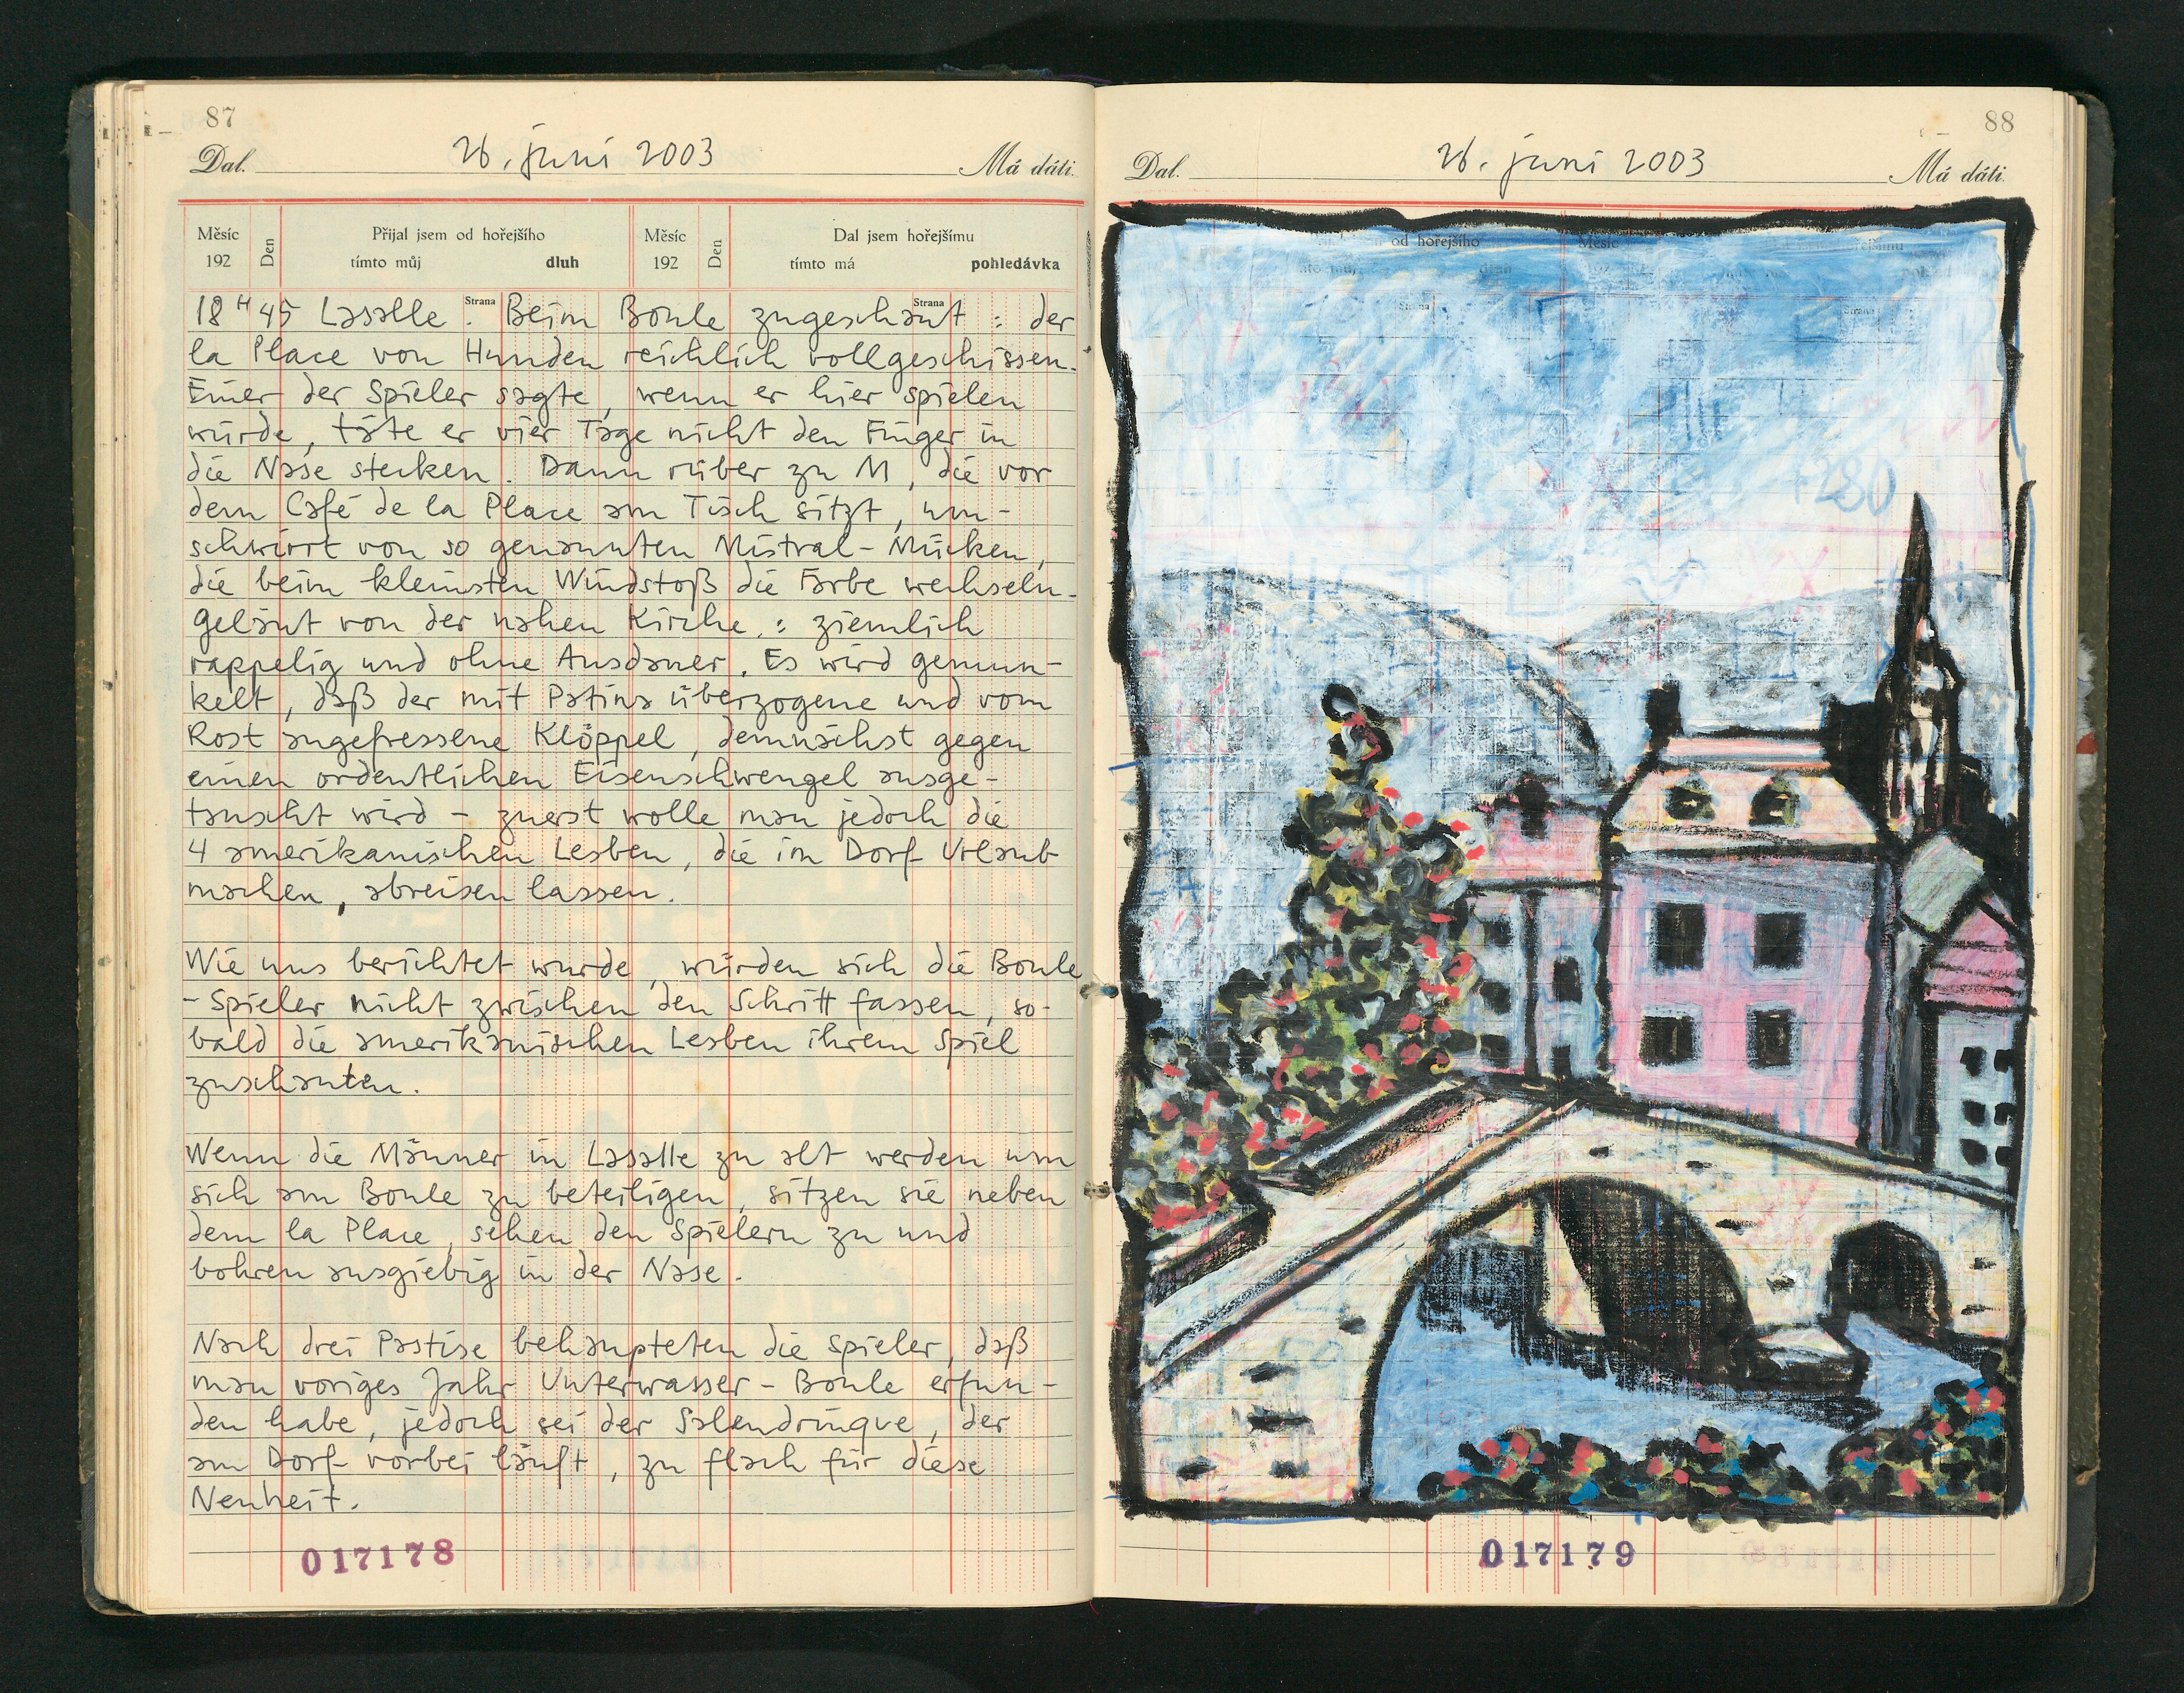 87
Dal. 26. juni 2003 Má dáti.
Měsíc Den Přijal jsem od hořejšího Měsíc Den Dal jsem hořejšímu
192 tímto můj dluh 192 tímto má pohledávka
Strana Strana
18 H 45 Lasalle. Beim Boule zugeschaut: der
la Place von Hunden reichlich vollgeschissen.
Einer der Spieler sagte, wenn er hier spielen
würde, täte er vier Tage nicht den Finger in
die Nase stecken. Dann rüber zu M, die vor
dem Café de la Place am Tisch sitzt, um-
schwirrt von so genannten Mistral-Mücken,
die beim kleinsten Windstoß die Farbe wechseln.
Geläut von der nahen Kirche,: ziemlich
rappelig und ohne Ausdauer. Es wird gemun-
kelt, daß der mit Patina überzogene und vom
Rost angefressene Klöppel, demnächst gegen
einen ordentlichen Eisenschwengel ausge-
tauscht wird – zuerst wolle man jedoch die
4 amerikanischen Lesben, die im Dorf Urlaub
machen, abreisen lassen.
Wie uns berichtet wurde, würden sich die Boule
-Spieler nicht zwischen den Schritt fassen, so-
bald die amerikanischen Lesben ihrem Spiel
zuschauten.
Wenn die Männer in Lasalle zu alt werden um
sich am Boule zu beteiligen, sitzen sie neben
dem la Place, sehen den Spielern zu und
bohren ausgiebig in der Nase.
Nach drei Pastise behaupteten die Spieler, daß
man voriges Jahr Unterwasser-Boule erfun-
den habe, jedoch sei der Salendrinque, der
am Dorf vorbei läuft, zu flach für diese
Neuheit.
017178
88
Dal. 26. juni 2003 Má dáti.
od hořejšího Měsíc
Strana
+280
017179